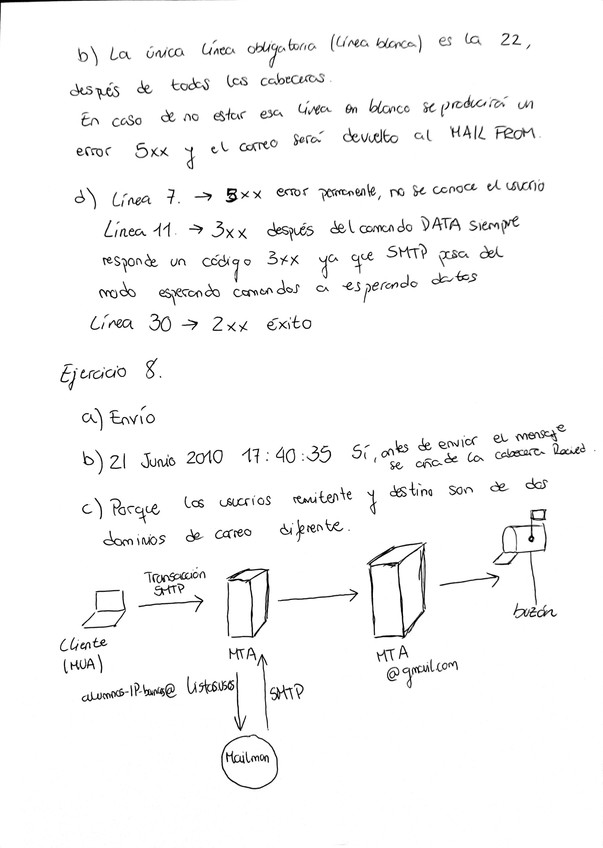 b) La única línea obligatoria (línea blanca) es la 22,
despés de todas las cabeceras.
En caso de no estar esa línea en blanco se producirá un
error 5xx y el correo será devuelto al MAIL FROM.
d) Línea 7. → 5xx error permanente, no se conoce el usuario
Línea 11. → 3xx después del comando DATA siempre
responde un código 3xx ya que SMTP pasa del
modo esperando comandos a esperando datos
Línea 30 → 2xx éxito
Ejercicio 8.
a) Envío
b) 21 Junio 2010 17:40:35 Sí, antes de enviar el mensaje
se añade la cabecera
c) Porque los usuarios remitente y destino son de dos
dominios de correo diferente.
Transacción
SMTP
buzón
Cliente
(MUA)
MTA
MTA
@gmail.com
alumnos-IP-
SMTP
Mailman